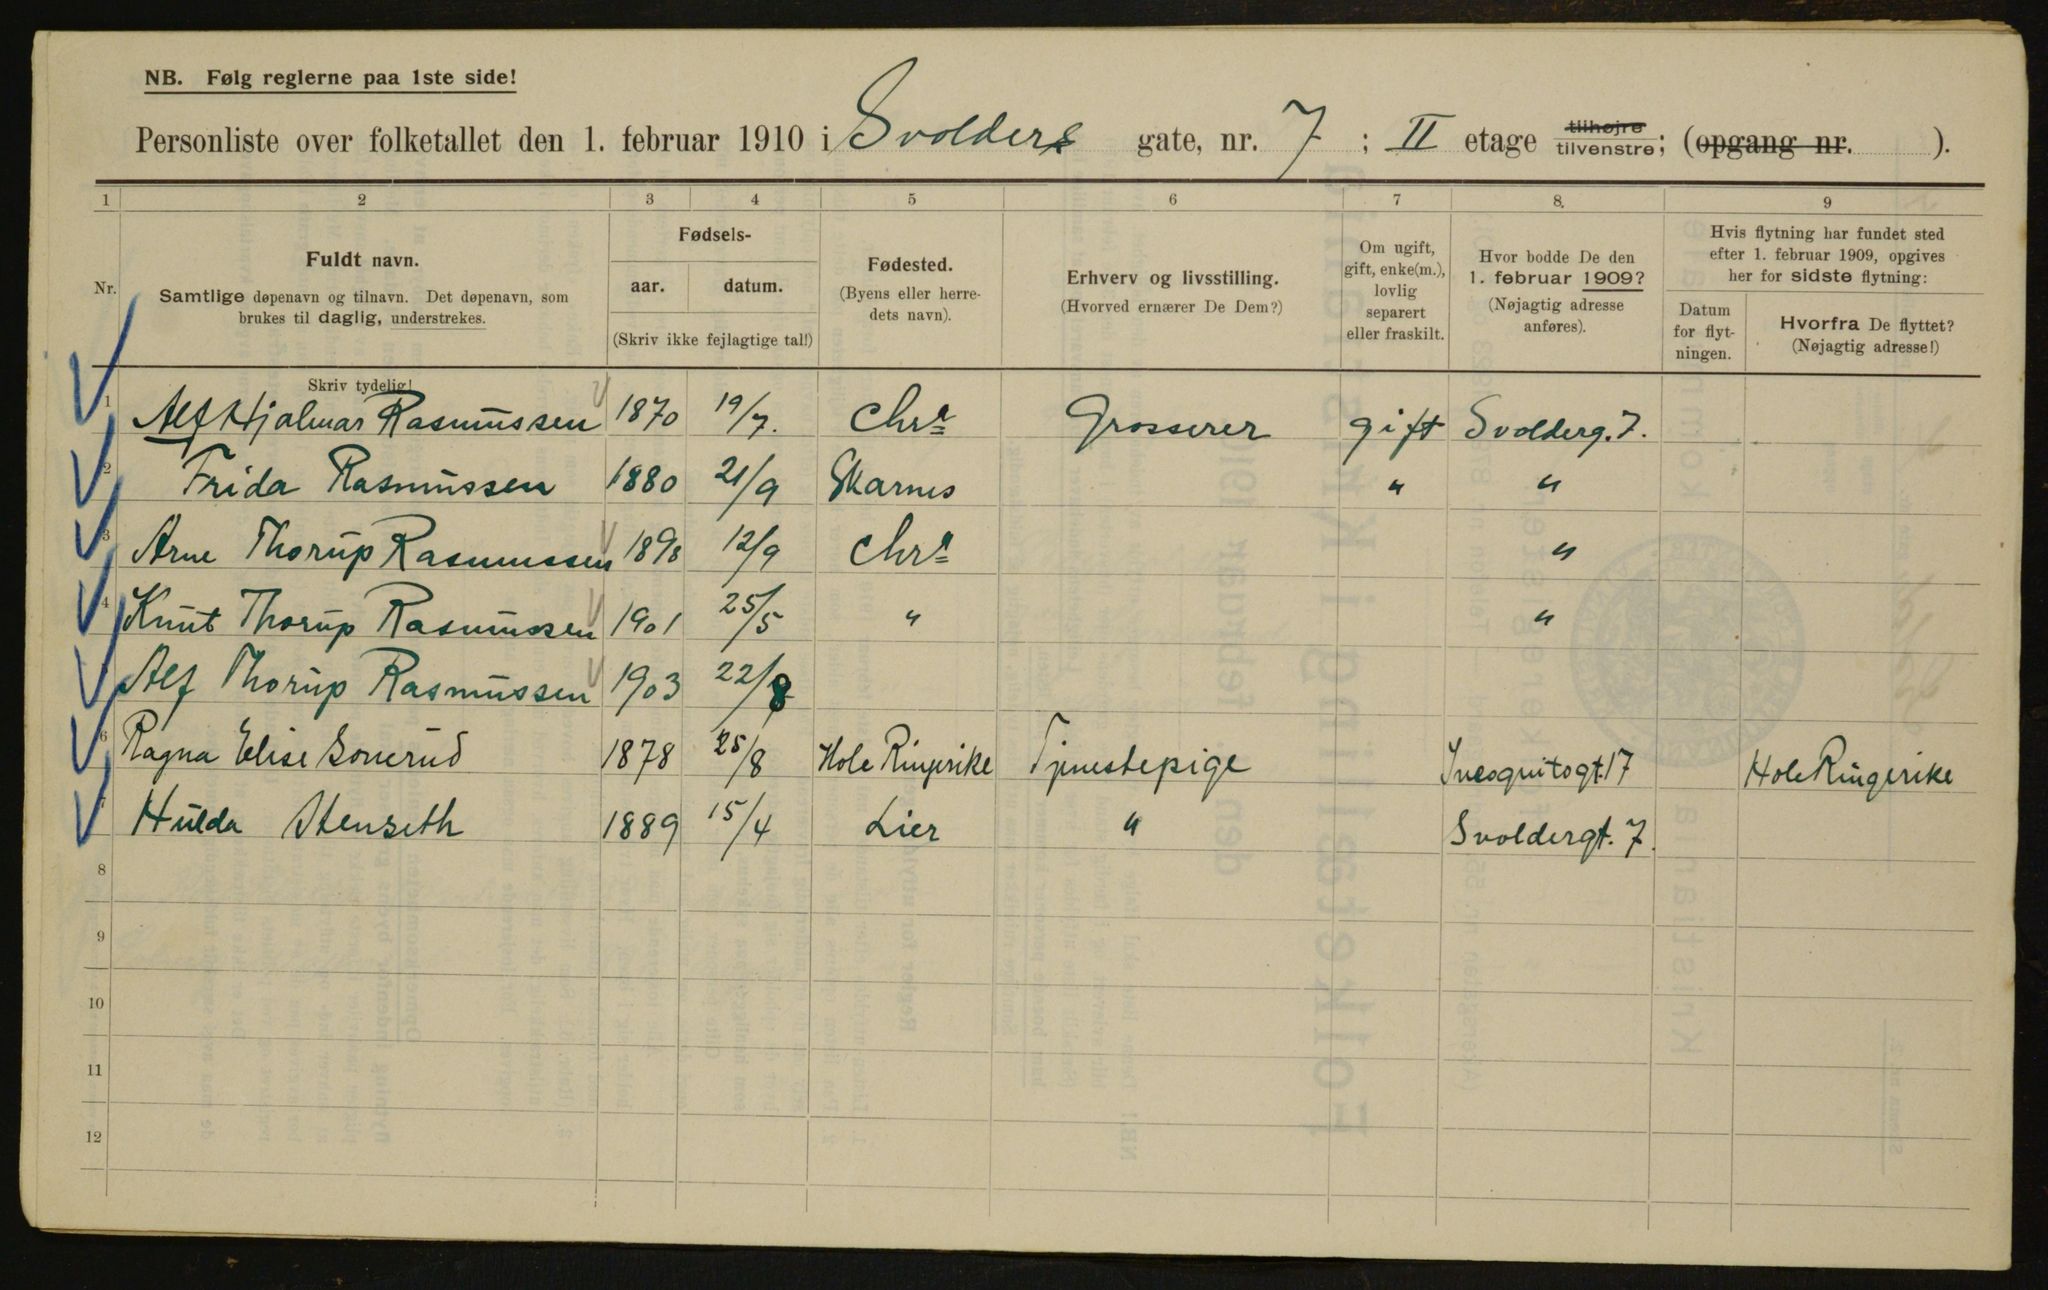 NB. Følg reglerne paa 1ste side!
Personliste over folketallet den 1. februar 1910 i Svolders gate, nr. 7 ; II etage tilhøjre tilvenstre; (opgang nr. ).
1 2 3 4 5 6 7 8. 9
Nr.
Fuldt navn.
Samtlige døpenavn og tilnavn. Det døpenavn, som
brukes til daglig, understrekes.
Skriv tydelig!
Fødsels-
aar. datum.
(Skriv ikke fejlagtige tal!)
Fødested.
(Byens eller herre-
dets navn).
Erhverv og livsstilling.
(Hvorved ernærer De Dem?)
Om ugift,
gift, enke(m.),
lovlig
separert
eller fraskilt.
Hvor bodde De den
1. februar 1909?
(Nøjagtig adresse
anføres).
Hvis flytning har fundet sted
efter 1. februar 1909, opgives
her for sidste flytning:
Datum
for flyt-
ningen.
Hvorfra De flyttet?
(Nøjagtig adresse!)
1 Alf Hjalmar Rasmussen 1870 19/7. Chra Grosserer gift Svolderg. 7.
2 Frida Rasmussen 1880 21/9 Skarnes " "
3 Arne Thorup Rasmussen 1898 12/9 Chra "
4 Knut Thorup Rasmussen 1901 25/5 " "
Alf Thorup Rasmussen 1903 22/8
6 Ragna Elise 1878 25/8 Hole Ringerike Tjenestepige Incognitogt. 17 Hole Ringerike
Hulda Stenseth 1889 15/4 Lier " Svoldergt. 7.
8
9
10
11
12